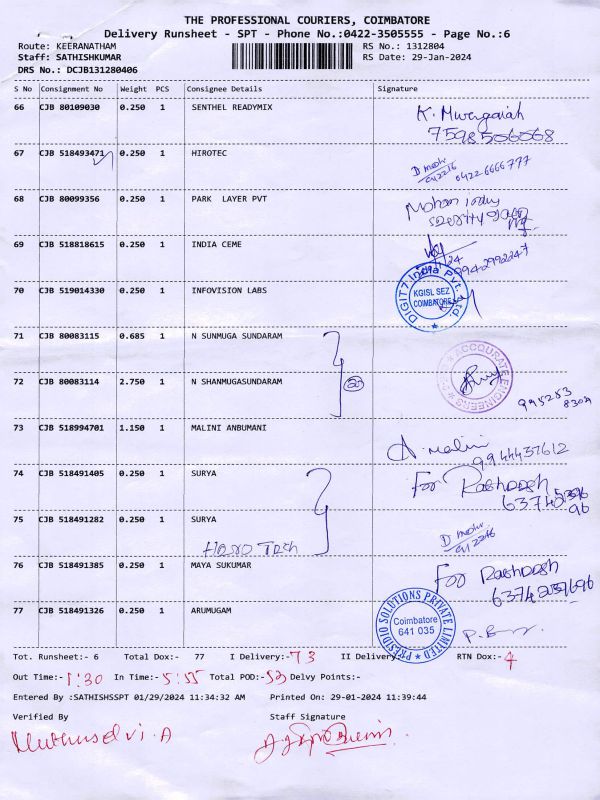 THE PROFESSIONAL COURIERS, COIMBATORE
Delivery Runsheet - SPT - Phone No.:0422-3505555 - Page No.:6
Route: KEERANATHAM RS No.: 1312804
Staff: SATHISHKUMAR RS Date: 29-Jan-2024
DRS No.: DCJB131280406
S No Consignment No Weight PCS Consignee Details Signature
66 CJB 80109030 0.250 1 SENTHEL READYMIX
7598506068
67 CJB 518493471 0.250 1 HIROTEC
0422 6666777
68 CJB 80099356 0.250 1 PARK LAYER PVT
Mohan
69 CJB 518818615 0.250 1 INDIA CEME
9942992247
70 CJB 519014330 0.250 1 INFOVISION LABS
DIGIT7 India Pvt. Ltd.
KGISL SEZ
COIMBATORE
71 CJB 80083115 0.685 1 N SUNMUGA SUNDARAM
ACCQURATE ENGINEERS
72 CJB 80083114 2.750 1 N SHANMUGASUNDARAM
995283
8302
73 CJB 518994701 1.150 1 MALINI ANBUMANI
A. malini
9944437612
74 CJB 518491405 0.250 1 SURYA
For
75 CJB 518491282 0.250 1 SURYA
Hero Tech
76 CJB 518491385 0.250 1 MAYA SUKUMAR
For
77 CJB 518491326 0.250 1 ARUMUGAM
PRESIDIO SOLUTIONS PRIVATE LIMITED
Coimbatore
641 035
Tot. Runsheet:- 6 Total Dox:- 77 I Delivery:- 73 II Delivery RTN Dox:- 4
Out Time:- 1:30 In Time:- 5:55 Total POD:- 53 Delvy Points:-
Entered By :SATHISHSSPT 01/29/2024 11:34:32 AM Printed On: 29-01-2024 11:39:44
Verified By Staff Signature
Muthuselvi.A